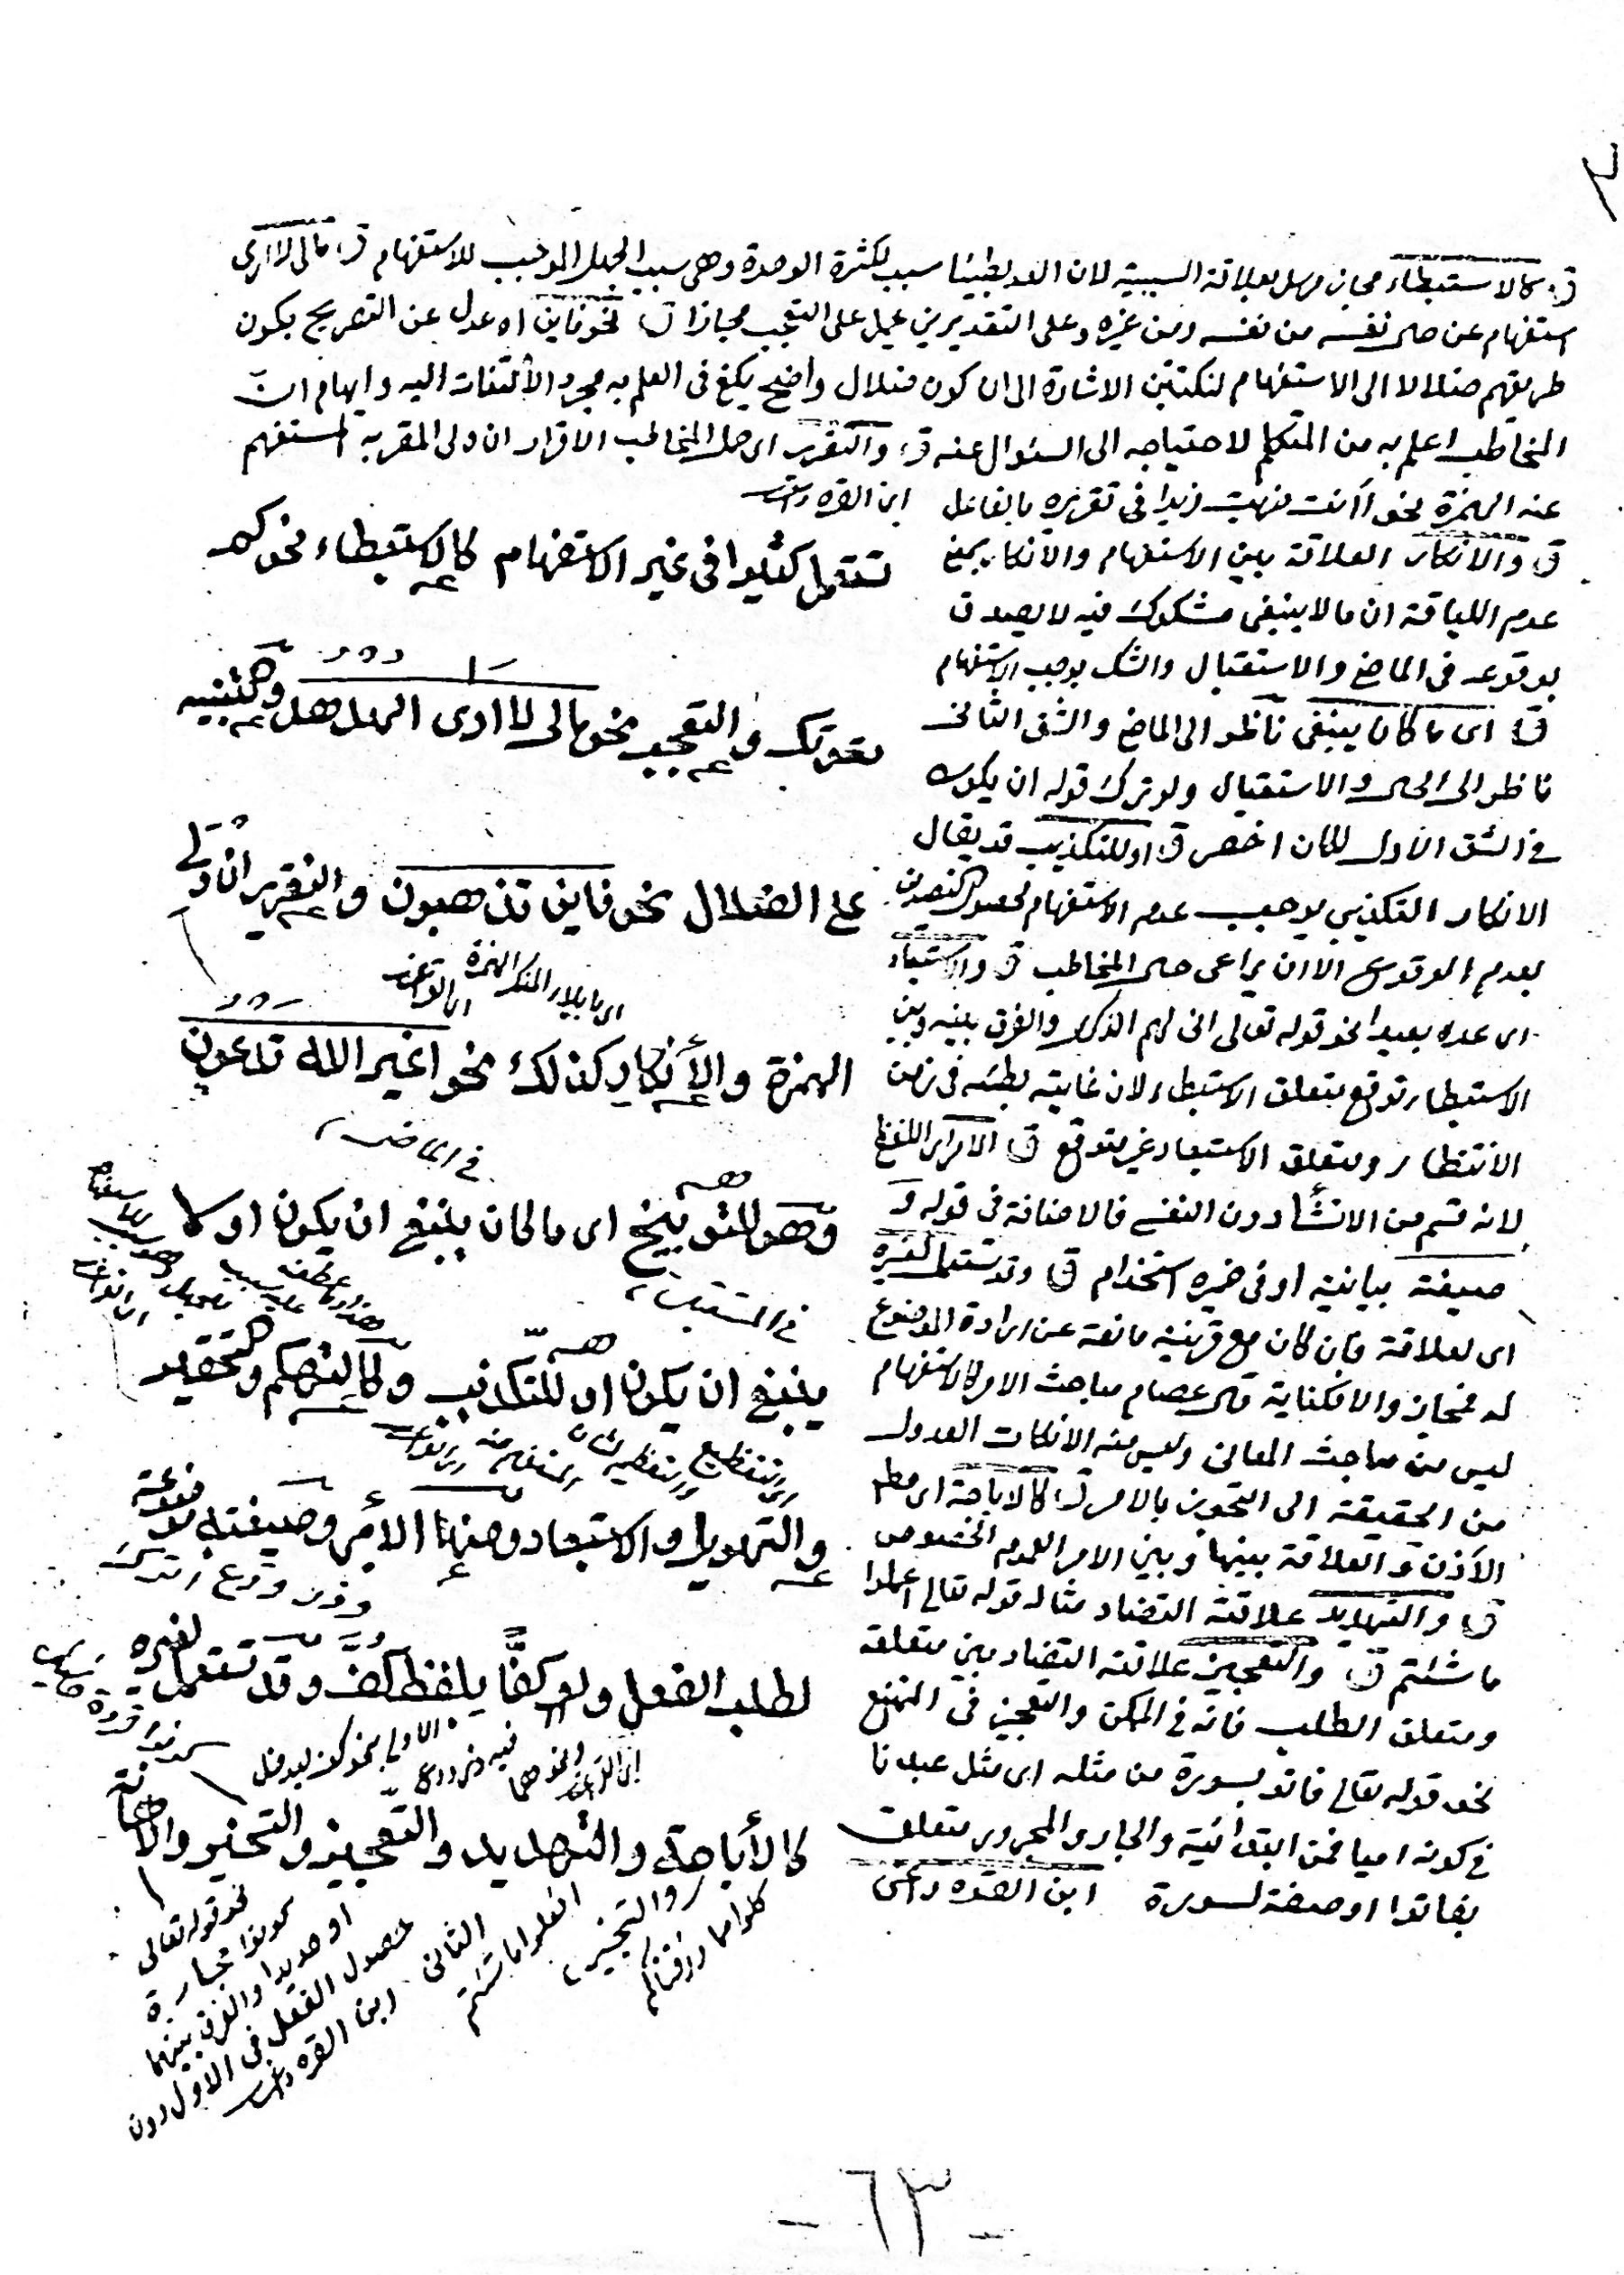 ق كالاستبطاء مجاز مرسل بعلاقة السببية لان العد بطيئا سبب لكثرة الوحدة وهى سبب الجهل الموجب للاستفهام ق مالى لا ارى
استفهام عن حال نفسه من نفسه ومن غيره وعلى التقديرين عمل على التعجب مجازا ق نحو فاين اه عدل عن التصريح بكون
طريقهم ضلالا الى الاستفهام لنكتتين الاشارة الى ان كون ضلال واضح يكفى فى العلم به مجرد الألتفات اليه وايهام ان
المخاطب اعلم به من المتكلم لاحتياجه الى السئوال عنه ق والتقرير اى حمل المخاطب الاقرار ان ولى المقر به المستفهم
عنه الهمزة نحو أانت ضربت زيدا فى تقريره بالفاعل ابن القره داغى
ق والانكار العلاقة بين الاستفهام والأنكار بمعنى
عدم اللياقة ان مالا ينبغى مشكوك فيه لا يصدق
بوقوعه فى الماضى والاستقبال والشك يوجب الاستفهام
ق اى ما كان ينبغى ناظر الى الماضى والشق الثانى
ناظر الى الحال والاستقبال ولو ترك قوله ان يكون
فى الشق الأول لكان اخصر ق او للتكذيب قد يقال
الانكار التكذيبى يوجب عدم الاستفهام لحصول التصديق
بعدم الوقوع الا ان يراعى حال المخاطب ق والاستبعاد
اى عده بعيدا نحو قوله تعالى انى لهم الذكرى والفرق بينه وبين
الاستبطاء توقع متعلق الاستبطاء لان غايته بطئه فى زمن
الانتظار ومتعلق الاستبعاد غير متوقع ق الامر اى اللفظى
لانه قسم من الانشاء دون النفسى فالاضافة فى قوله و
صيغته بيانية او فى ضميره استخدام ق وقد تستعمل لغيره
اى لعلاقة فان كان مع قرينة مانعة عن ارادة الموضوع
له فمجاز والا فكناية قال عصام مباحث الامر كالاستفهام
ليس من مباحث المعانى وليس منه الانكات العدول
من الحقيقة الى التجوز بالامر ق كالاباحة اى مطلق
الأذن والعلاقة بينها وبين الامر العموم الخصوص
ق والتهديد علاقته التضاد مثاله قوله تعالى اعملوا
ما شئتم ق والتعجيز علاقته التضاد بين متعلقه
ومتعلق الطلب فانه فى الممكن والتعجيز فى الممتنع
نحو قوله تعالى فاتو بسورة من مثله اى مثل عبدنا
فى كونه اميا فمن ابتدائية والجار والمجرور متعلق
بفاتوا او صفة لسورة ابن القره داغى
تستعمل كثيرا فى غير الاستفهام كالاستبطاء نحو كم
دعوتك والتعجب نحو مالى لا ارى الهدهد وكتنبيه
على الضلال نحو فاين تذهبون والتقرير ان ولى
اى ما يلى المنكر الهمزة
الهمزة والأنكار كذلك نحو اغير الله تدعون
فى الماضى
وهو للتوبيخ اى ما كان ينبغى ان يكون او لا
فى المستقبل
ينبغى ان يكون او للتكذيب وكالتهكم وكتحقير
والتهويل والاستبعاد ومنها الأمر وصيغته موضوعة
لطلب الفعل ولو كفًّا بلفظ كف وقد تستعمل لغيره
كالأباحة والتهديد والتعجيز والتخير والاهانة
كلوا مما رزقناكم
والتخيير
افعلوا ما شئتم
نحو قوله تعالى
كونوا حجارة
او حديدا والفرق بينهما
حصول الفعل فى الاول دون
الثانى ابن القره داغى
- ٦٣ -